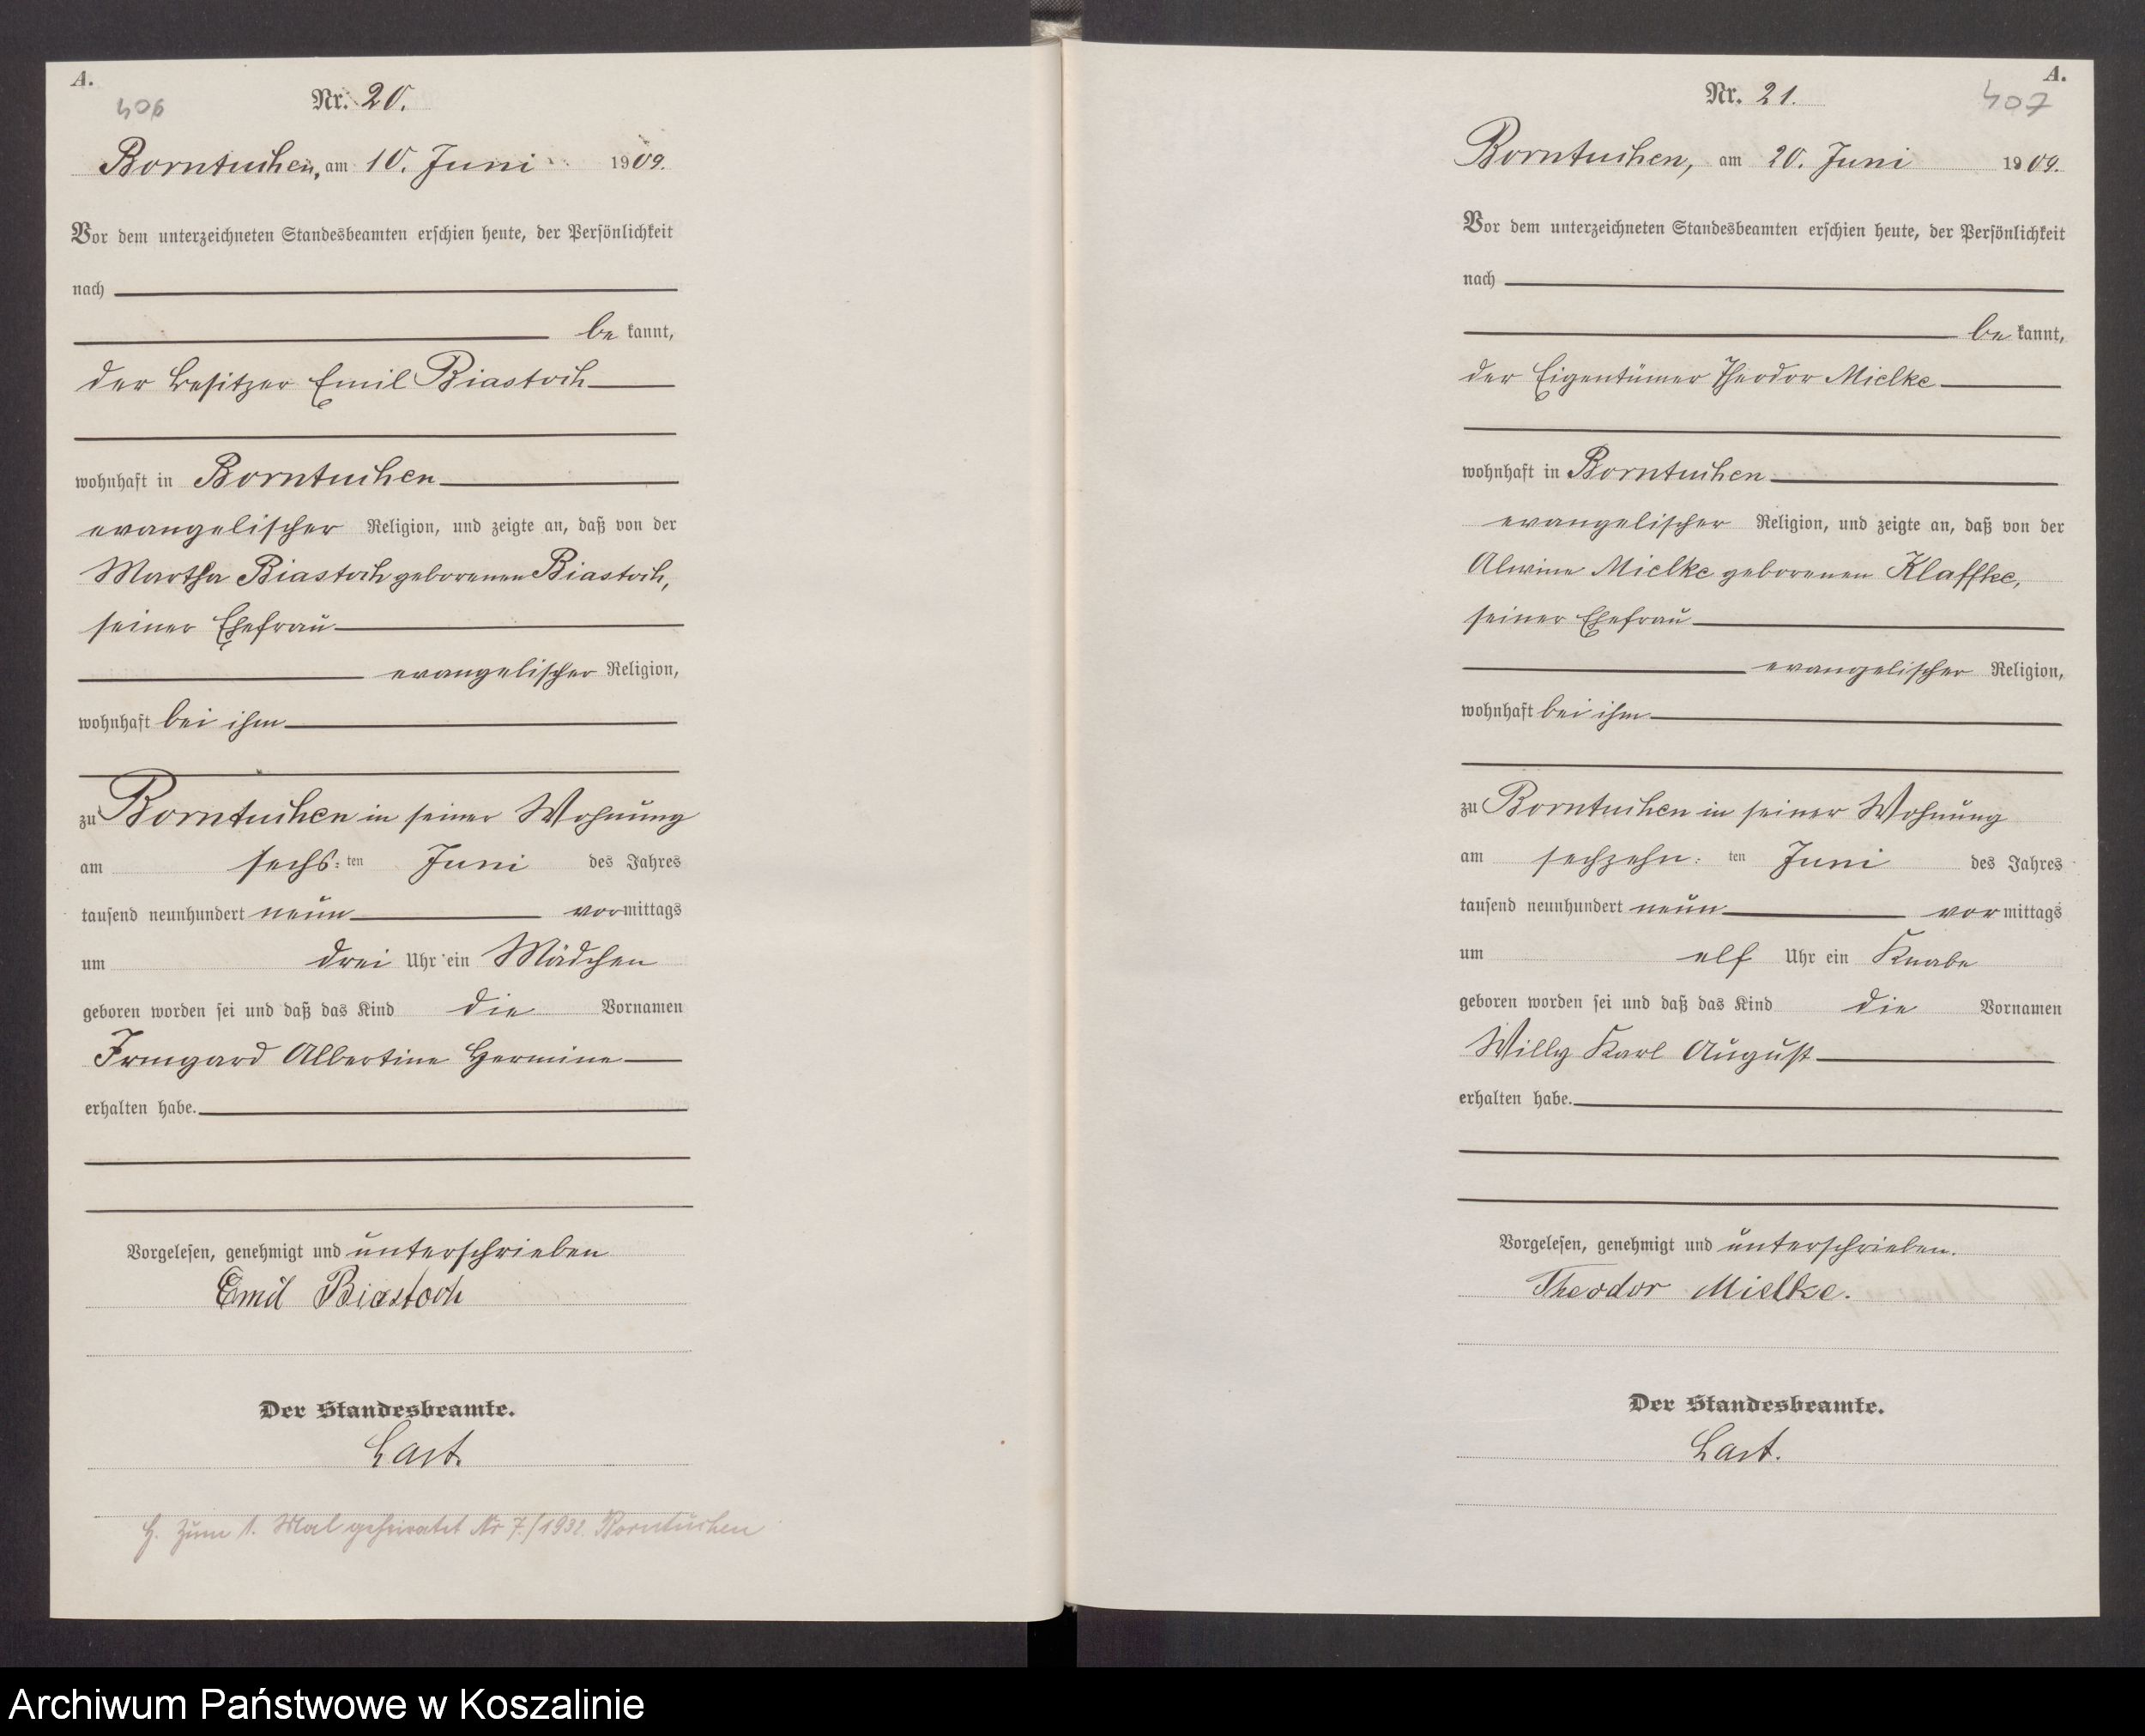 A.
406
Nr. 20.
Borntuchen, am 10. Juni 1909.
Vor dem unterzeichneten Standesbeamten erschien heute, der Persönlichkeit
nach
be kannt,
der Besitzer Emil Biastoch
wohnhaft in Borntuchen
evangelischer Religion, und zeigte an, daß von der
Martha Biastoch geborenen Biastoch,
seiner Ehefrau
evangelischer Religion,
wohnhaft bei ihm
zu Borntuchen in seiner Wohnung
am sechs:ten Juni des Jahres
tausend neunhundert neun vormittags
um drei Uhr ein Mädchen
geboren worden sei und daß das Kind die Vornamen
Irmgard Albertine Hermine
erhalten habe.
Vorgelesen, genehmigt und unterschrieben
Emil Biastoch
Der Standesbeamte.
Last.
H. Zum 1. Mal geheiratet Nr 7./1932. Borntuchen
A.
407
Nr. 21.
Borntuchen, am 20. Juni 1909.
Vor dem unterzeichneten Standesbeamten erschien heute, der Persönlichkeit
nach
be kannt,
der Eigentümer Theodor Mielke
wohnhaft in Borntuchen
evangelischer Religion, und zeigte an, daß von der
Alwine Mielke geborenen Klaffke,
seiner Ehefrau
evangelischer Religion,
wohnhaft bei ihm
zu Borntuchen in seiner Wohnung
am sechzehn:ten Juni des Jahres
tausend neunhundert neun vormittags
um elf Uhr ein Knabe
geboren worden sei und daß das Kind die Vornamen
Willy Karl August
erhalten habe.
Vorgelesen, genehmigt und unterschrieben.
Theodor Mielke.
Der Standesbeamte.
Last.
Archiwum Państwowe w Koszalinie